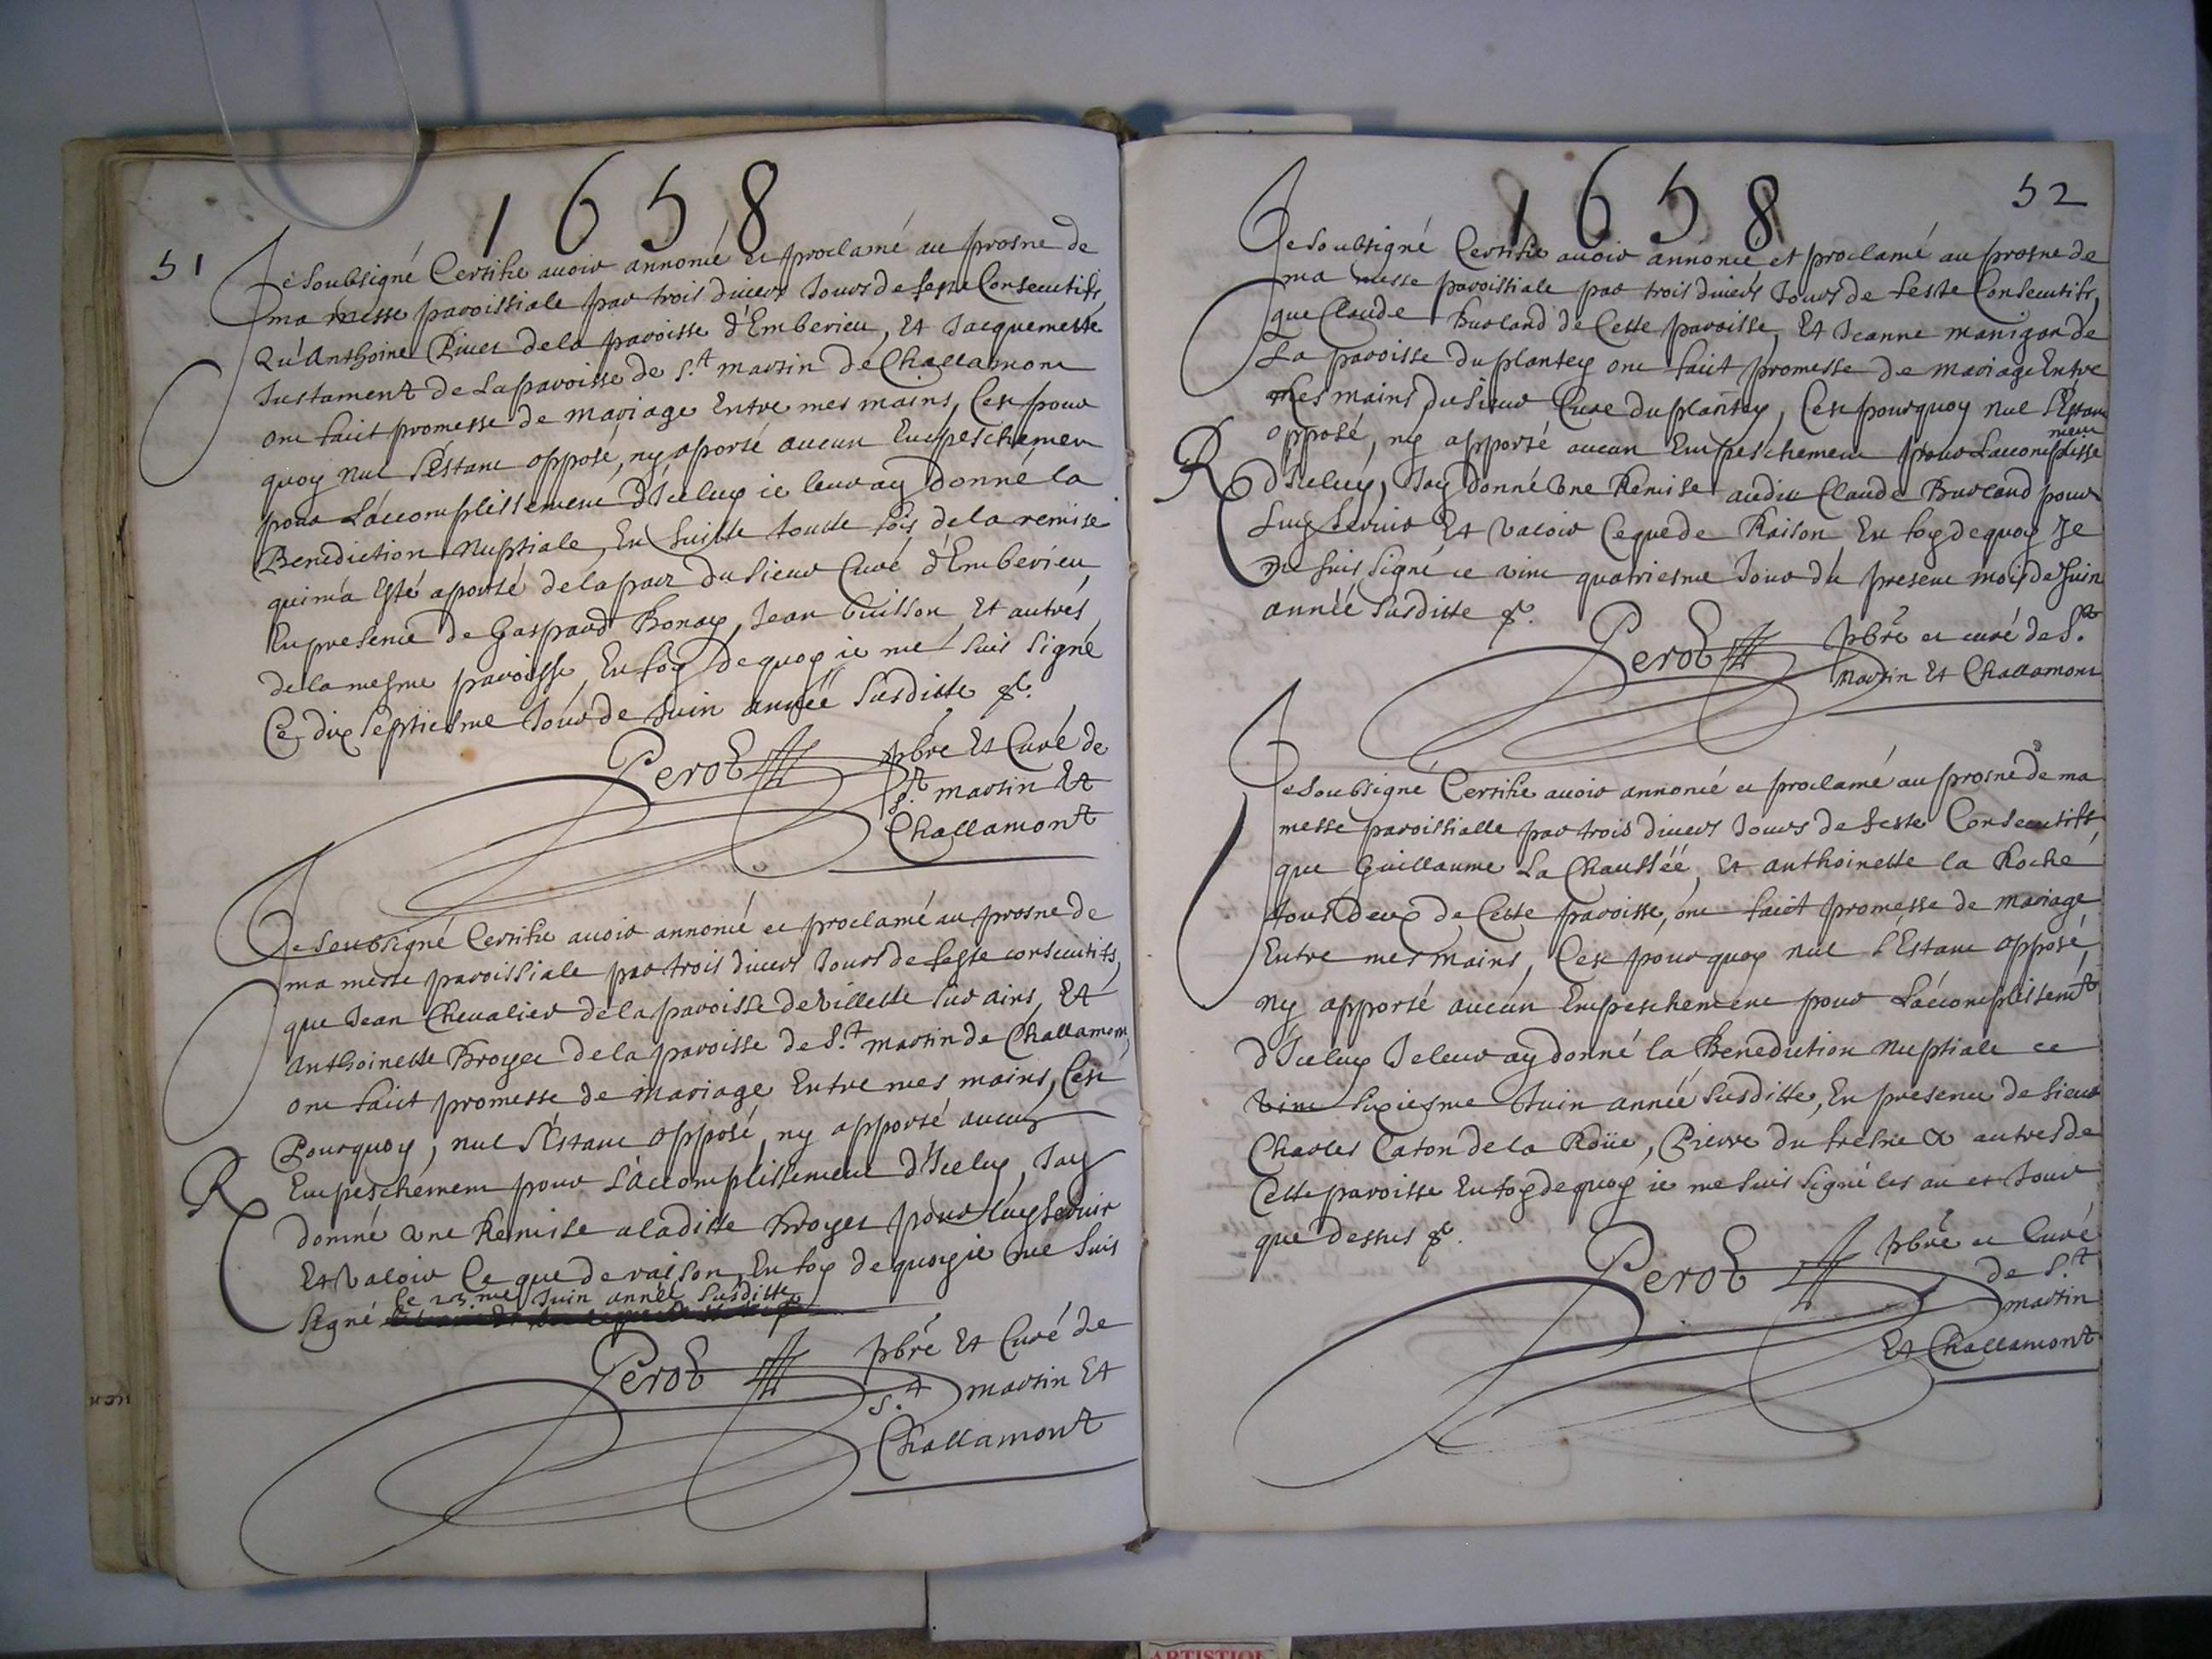 1658
51
Je soubsigné Certifie avoir annoncé et proclamé au prosne de
ma messe paroissiale par trois divers Jours de feste Consecutifs,
Qu'Anthoine Pivet de la paroisse d'Emberieu, Et Jacquemette
Justament de La paroisse de S.t martin de Challamont
ont faict promesse de mariage Entre mes mains, Cest pour
quoy nul s'Estant opposé, ny aporté aucun Empeschement
pour L'accomplissement d'Iceluy ie leur ay donné la
Benediction Nuptiale, En suitte toutte fois de la remise
qui m'a Esté aportée de la part du sieur Curé d'Emberieu
En presence de Gaspard Bonay, Jean Buisson, Et autres
de la mesme paroisse, En foy de quoy ie me suis signé
Ce dix septiesme Jour de Juin année susditte &.
Perot pbre Et Curé de
S.t martin Et
Challamont
Je soubsigné Certifie avoir annoncé et proclamé au prosne de
ma messe paroissiale par trois divers Jours de feste consecutifs,
que Jean Chevalier de la paroisse de villette sur ains, Et
Anthoinette Broyer de la paroisse de S.t martin de Challamont,
ont faict promesse de mariage Entre mes mains, Cest
Pourquoy, nul s'Estant opposé, ny apporté aucun
Empeschement pour L'accomplissement d'Iceluy, Jay
R
donné une Remise a la ditte Broyer pour luy servir
Et valoir Ce que de raison, En foy de quoy ie me suis
le 23.me Juin année susditte
signé
Perot pbre Et Curé de
S.t martin Et
Challamont
1658
52
Je soubsigné Certifie avoir annoncé et proclamé au prosne de
ma messe paroissiale par trois divers Jours de feste Consecutifs,
que Claude Burland de Cette paroisse, Et Jeanne manigan de
La paroisse du plantey ont faict promesse de mariage Entre
les mains du sieur Curé du plantey, Cest pourquoy nul s'Estant
opposé, ny apporté aucun Empeschement pour L'accomplisse
ment
R
d'Iceluy, Jay donné une Remise audit Claude Burland pour
Luy servir Et valoir Ce que de Raison En foy de quoy Je
me suis signé ce vint quatriesme Jour du present mois de Juin
année susditte &.
Perot pbre et curé de S.t
Martin Et Challamont
Je soubsigné Certifie avoir annoncé et proclamé au prosne de ma
messe paroissialle par trois divers Jours de feste Consecutifs
que Guillaume La Chaussée, Et anthoinette la Roche
tous deux de Cette paroisse, ont faict promesse de mariage
Entre mes mains, Cest pourquoy nul s'Estant opposé,
ny apporté aucun Empeschement pour L'accomplissem.t
d'Iceluy Je leur ay donné la Benediction Nuptiale ce
vint sixiesme Juin année susditte, En presence de sieur
Charles Caton de la Roüe, Pierre du fresne & autres de
Cette paroisse En foy de quoy ie me suis signé les an et Jour
que dessus &.
Perot pbre et Curé
de S.t
martin
Et Challamont